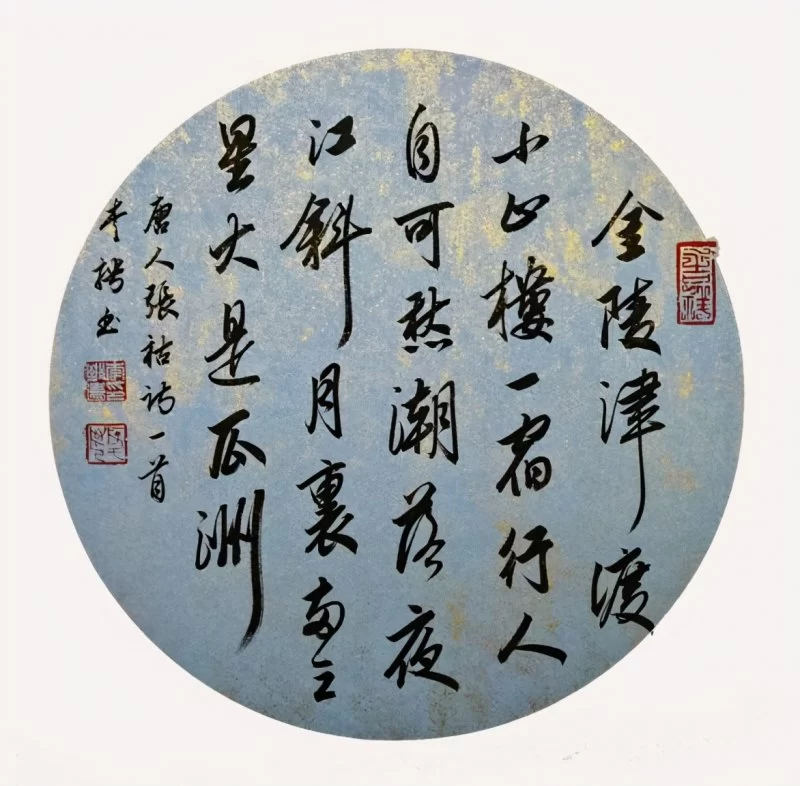 金陵津渡
小山樓一宿行人
自可愁潮落夜
江斜月裏兩三
星火是瓜洲
唐人張祜诗一首
李书